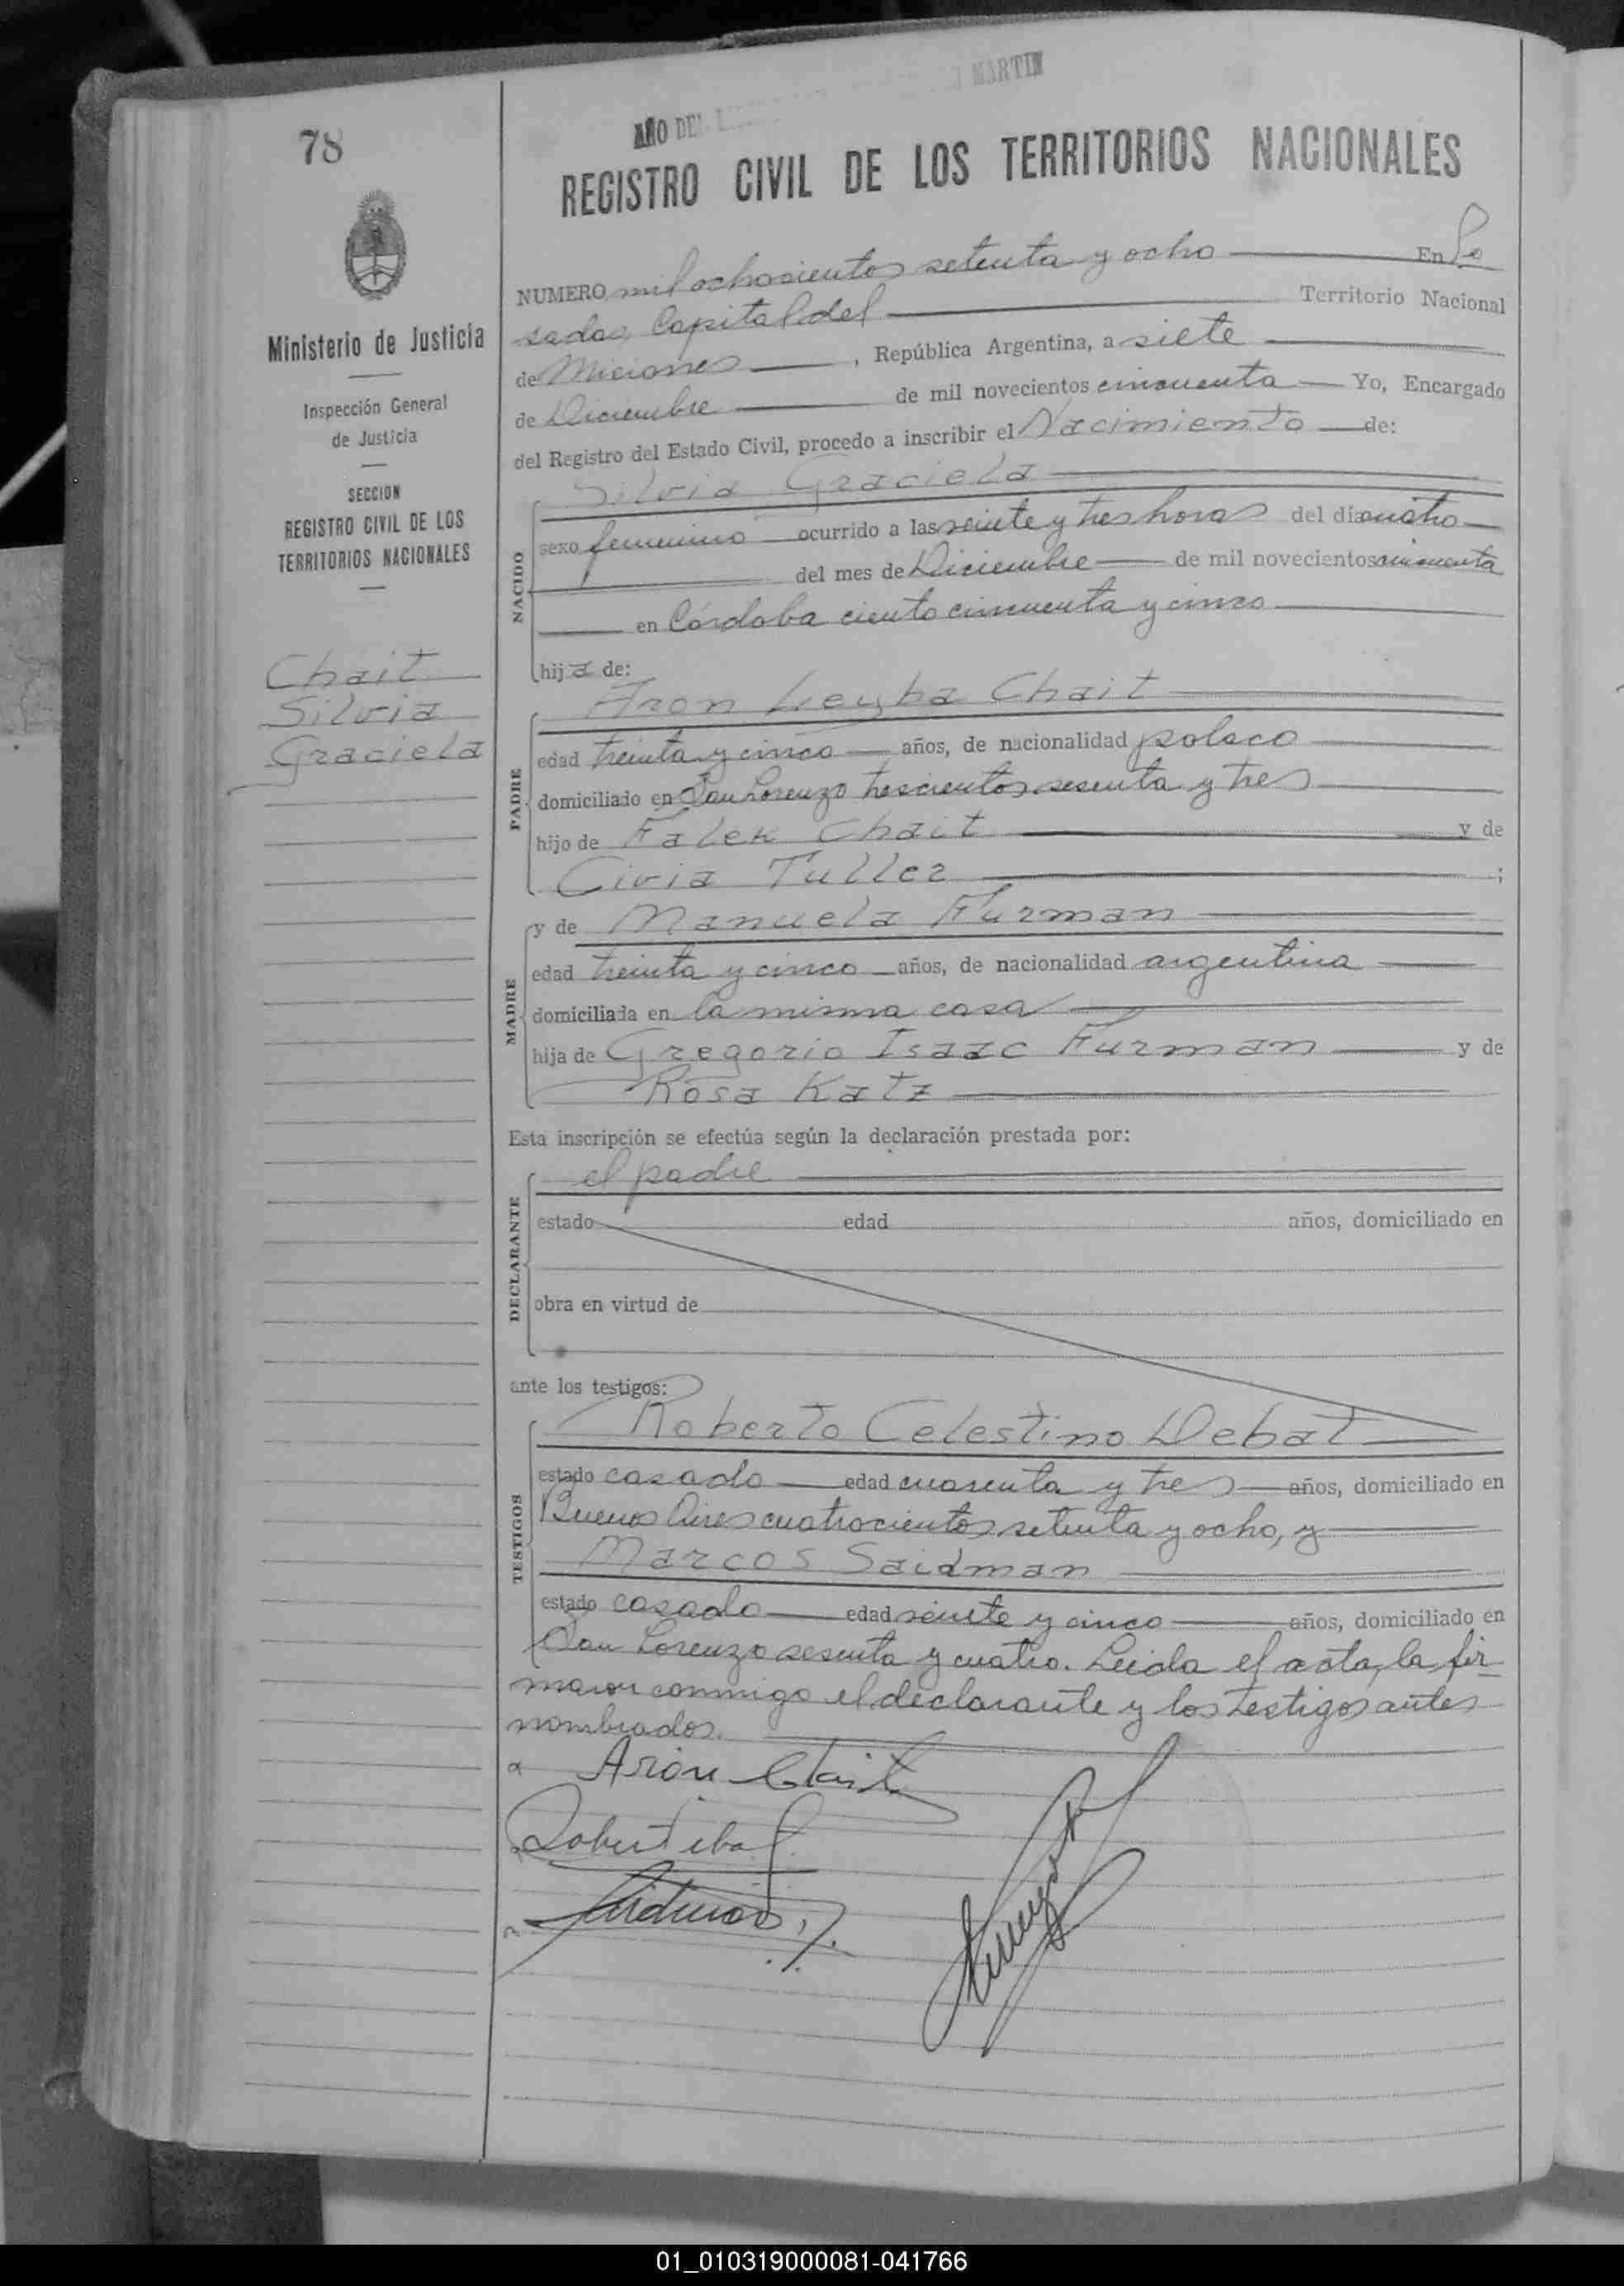 78
AÑO DEL
MARTIN
REGISTRO CIVIL DE LOS TERRITORIOS NACIONALES
Ministerio de Justicia
Inspección General
de Justicia
SECCION
REGISTRO CIVIL DE LOS
TERRITORIOS NACIONALES
Chait
Silvia
Graciela
NUMERO mil ochocientos setenta y ocho En Po
sadas, Capital del Territorio Nacional
de Misiones, República Argentina, a siete
de Diciembre de mil novecientos cincuenta Yo, Encargado
del Registro del Estado Civil, procedo a inscribir el Nacimiento de:
NACIDO
Silvia Graciela
sexo femenino ocurrido a las veinte y tres horas del día cuatro
del mes de Diciembre de mil novecientos cincuenta
en Córdoba ciento cincuenta y cinco
hija de:
PADRE
Aron Leyba Chait
edad treinta y cinco años, de nacionalidad polaco
domiciliado en San Lorenzo trescientos sesenta y tres
hijo de Falek Chait y de
Civia Tuller ;
MADRE
y de Manuela Furman
edad treinta y cinco años, de nacionalidad argentina
domiciliada en la misma casa
hija de Gregorio Isaac Furman y de
Rosa Katz
Esta inscripción se efectúa según la declaración prestada por:
DECLARANTE
el padre
estado edad años, domiciliado en
obra en virtud de
ante los testigos:
TESTIGOS
Roberto Celestino Debat
estado casado edad cuarenta y tres años, domiciliado en
Buenos Aires cuatrocientos setenta y ocho, y
Marcos Saidman
estado casado edad veinte y cinco años, domiciliado en
San Lorenzo sesenta y cuatro. Leida el acta, la fir
maron conmigo el declarante y los testigos antes
nombrados.
Aron Chait
01_010319000081-041766